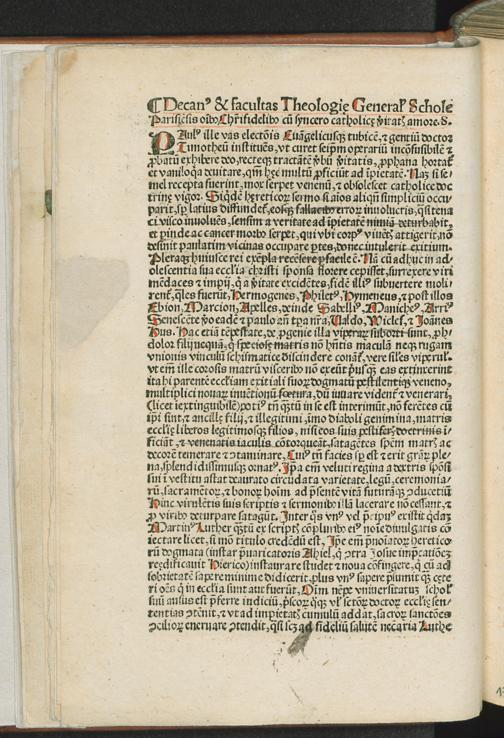 Decanꝰ & facultas Theologię General Schole
Parisiēsis oībꝰ Chr̄ifidelibꝰ cū syncero catholicę v̄itatꝭ amore. S.
Paulꝰ ille vas electōis Euāgelicusqꝫ tubicē, ⁊ gentiū doctor
Timotheū instituēs, vt curet seip̄m operariū incōfusibilē ⁊
ꝓbatū exhibere deo, recteqꝫ tractātē v̄bū v̄itatis, ꝓphana hortat
et vaniloqa deuitare, qm̄ hęc multū ꝓficiūt ad īpietatē. Naꝫ si se-
mel recepta fuerint, mox serpet venenū, ⁊ obsolescet catholicę doc
trinę vigor. Siqdē hęreticorꝫ sermo si aīos aliqn̄ simpliciū occu-
parit, sꝑ latius diffundet, involucris, qsi tena
ci visco inuoluēs, sensim a veritate ad īpietatē
et pinde ac cancer morbo serpet, qui vbi corpꝰ viuētꝭ attigerit, nō
desinit paulatim vicinas occupare ptes, donec intulerit exitium.
Pleraqꝫ huiusce rei exēpla recēsere ꝑfacile ē. Nā cū adhuc in ad-
olescentia sua eccl'ia christi sponsa florere cepisset, surrexere viri
mēdaces ⁊ impij, q̄ a v̄itate excidētes, fidē illiꝰ subuertere moli/
rent, q̄les fuerūt, Hermogenes, Philetꝰ, Hymeneus, ⁊ post illos
Ebion, Marcion, Apelles, deinde Sabelliꝰ, Manicheꝰ, Arriꝰ
Senescēte vo eadē ⁊ paulo an̄ tpa nr̄a, Valdo, Viclef, ⁊ Joānes
Hus. Hac etiā tēpestate, de ꝓgenie illa viperarꝫ suborti sunt, ꝓh
dolor filij nequā, q̄ speciosę matris nō hn̄tis maculā neqꝫ rugam
vnionis vinculū schismatice discindere conant, vere files viperalꝰ.
vt em̄ ille corosis matrū visceribꝰ nō exeūt pusqꝫ eas extinxerint
ita hi parentē eccl'iam exitiali suorꝫ dogmatū pestilentiqꝫ veneno,
multiplici nouarꝫ inuētionū foetura, dū iuuare videnť ⁊ venerari,
(licet īextinguibilē) potiꝰ tn̄ qtū in se est interimūt, nō ferētes cū
ip̄i sint, ⁊ ancillę filij, ⁊ illegitimi, imo diaboli genimina, matris
eccl'ię liberos legitimosqꝫ filios, nisi eos suis pestiferꝭ doctrinis i-
ficiāt, ⁊ venenatis iaculis cōtorqueāt, satagētes spēm matrꝭ ac
decorē temerare ⁊ cōtaminare, Cuiꝰ tn̄ facies sp est ⁊ erit grārꝫ ple-
na, splendidissimusqꝫ ornatꝰ. Ip̄a em̄ veluti regina a dextris spōsi
sui ī vestitu astat deaurato circūdata varietate, legū, ceremonia-
rū, sacramētorꝫ, ⁊ bonorꝫ hoim̄ ad p̄sentē vitā
Hinc virulētis suis scriptis ⁊ sermonibꝰ illā lacerare nō cessant, ⁊
ꝓ viribꝰ deturpare satagūt. Inter q̄s vnꝰ vel p̄cipuꝰ existit qdaꝫ
Martinꝰ Luther qtū ex scriptꝭ cōplunibꝰ eiꝰ noīe diuulgatis cō
iectare licet, si mō titulo credēdū est, Ip̄e em̄ p̄noīatorꝫ heretico
rū dogmata (instar p̄uaricatoris Ahiel, q̄ ⁊tra Josue imp̄cationeꝫ
reędificauit Hierico) instaurare studet ⁊ noua cōfingere, q̄ cū ad
sobrietatē sapere minime didicerit, plus vnꝰ sapere p̄sumit qꝫ cęte
ri oēs q̄ in eccl'ia sunt aut fuerūt, Oīm nēpe vniuersitatuꝫ schol'
suū ausus est p̄ferre iudiciū, p̄scorꝫ qꝫqꝫ vl' sctōrꝫ doctorꝫ eccl'ię sen-
tentias cōtēnit, ⁊ vt ad impietatꝭ cumulū addat, sacrorꝫ sanctōes
cōciliorꝫ eneruare ⁊tendit, qsi scꝫ ad fideliū salutē necāria Luthe